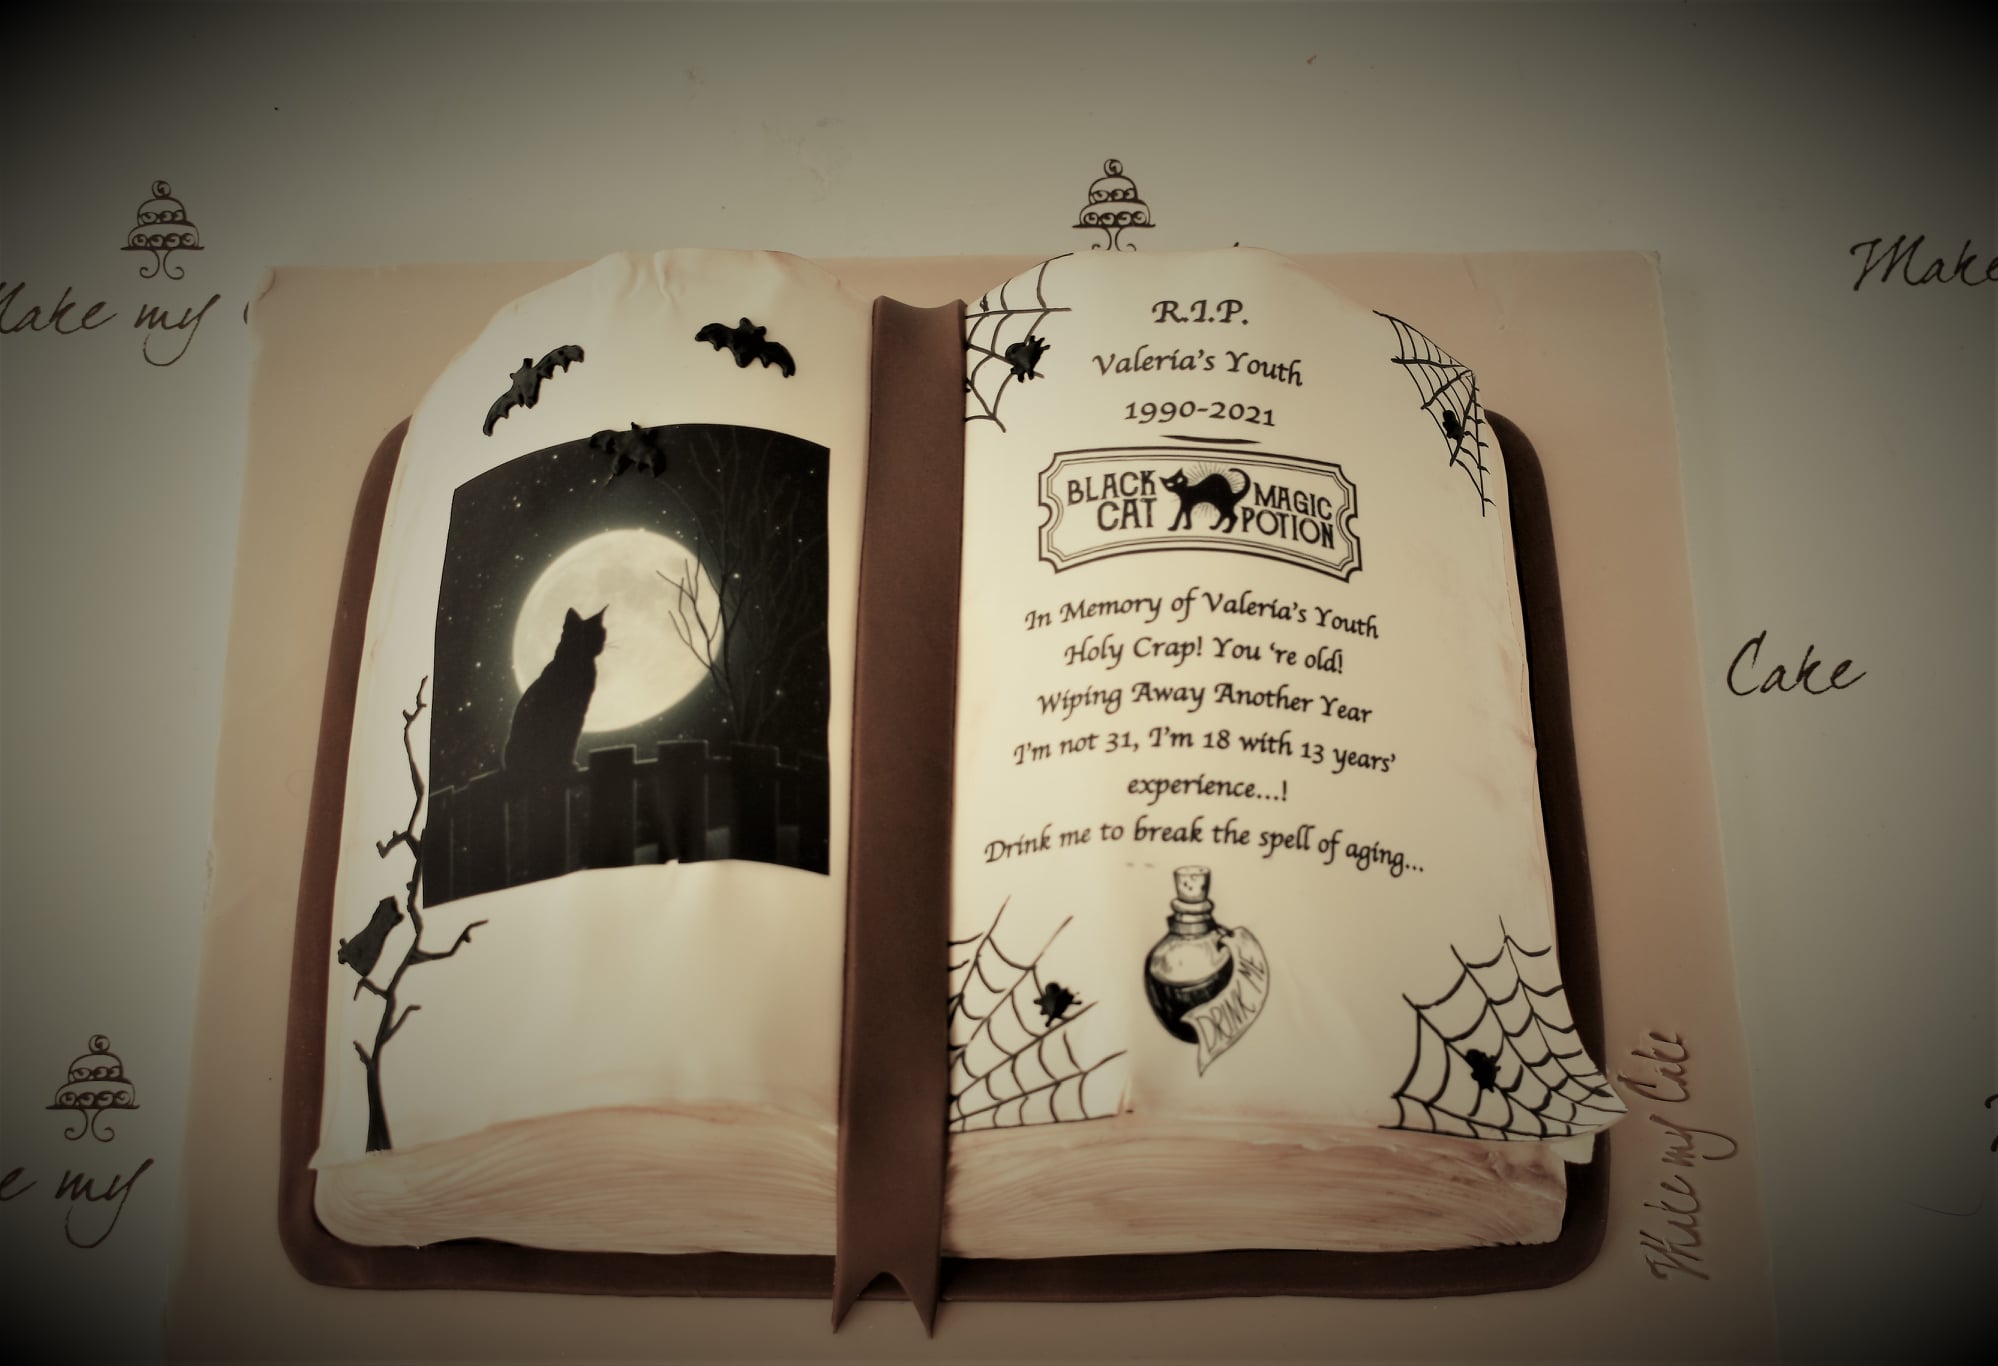 Make my
Make
R.I.P.
Valeria's Youth
1990-2021
BLACK CAT MAGIC POTION
In Memory of Valeria's Youth
Holy Crap! You 're old!
Wiping Away Another Year
I'm not 31, I'm 18 with 13 years'
experience...!
Drink me to break the spell of aging...
DRINK ME
Cake
my
Make my Cake